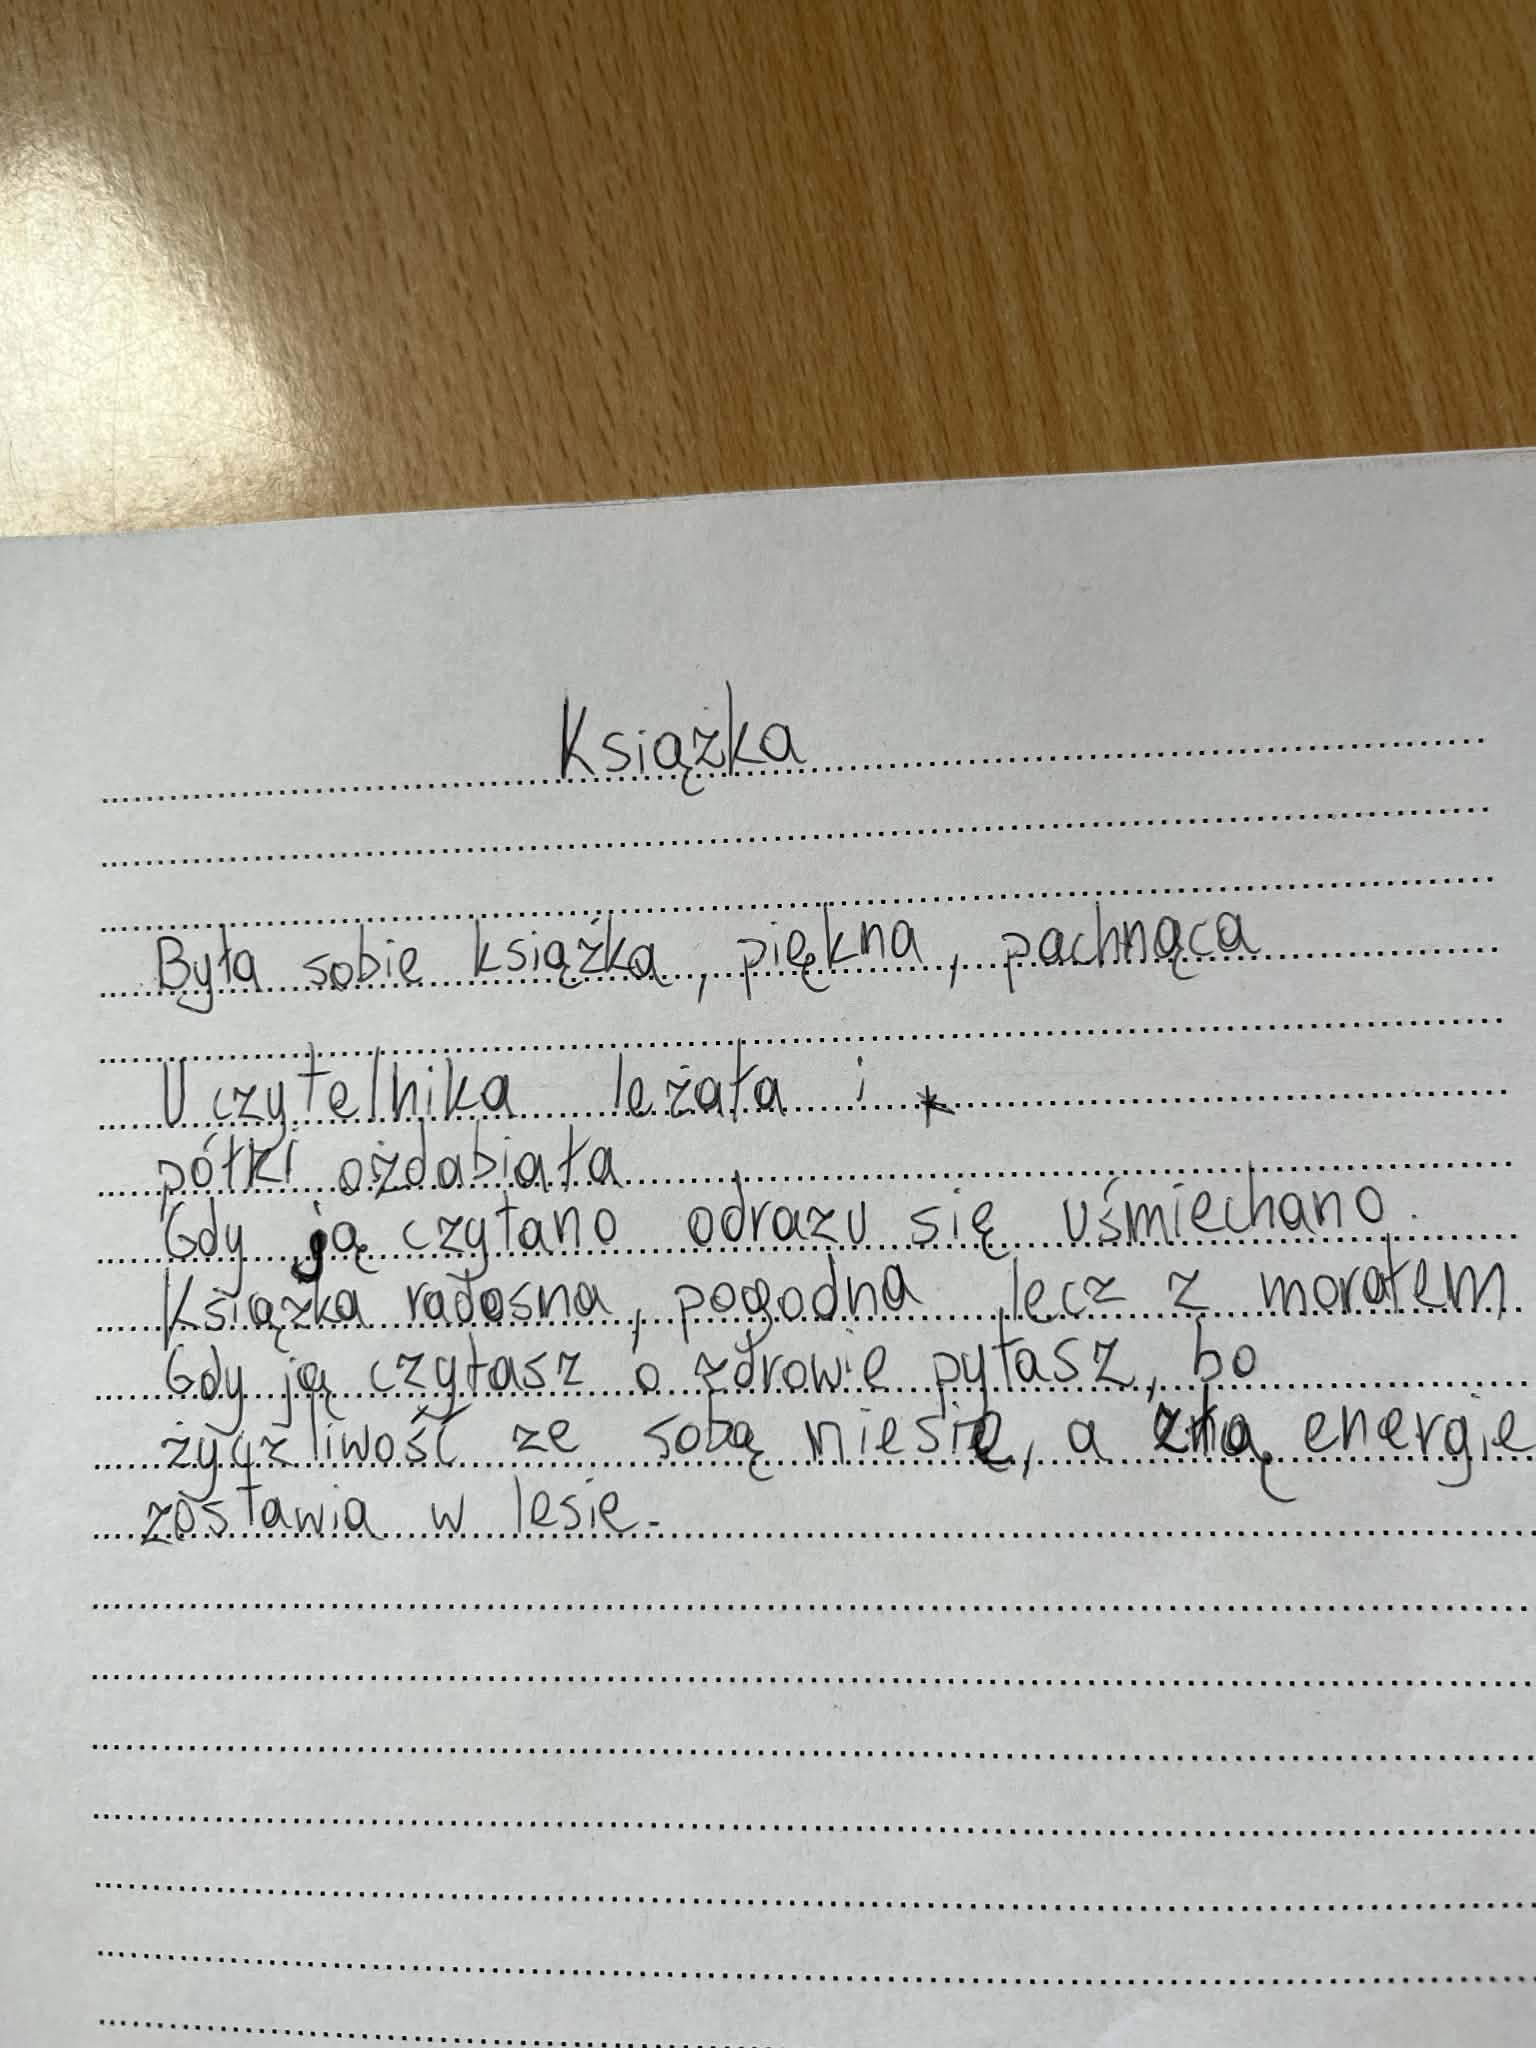 Książka
Była sobie książka, piękna, pachnąca
U czytelnika leżała i *
półki ozdabiała
Gdy ją czytano odrazu się uśmiechano.
Książka radosna, pogodna lecz z morałem
Gdy ją czytasz o zdrowie pytasz, bo
życzliwość ze sobą niesie, a złą energie
zostawia w lesie.